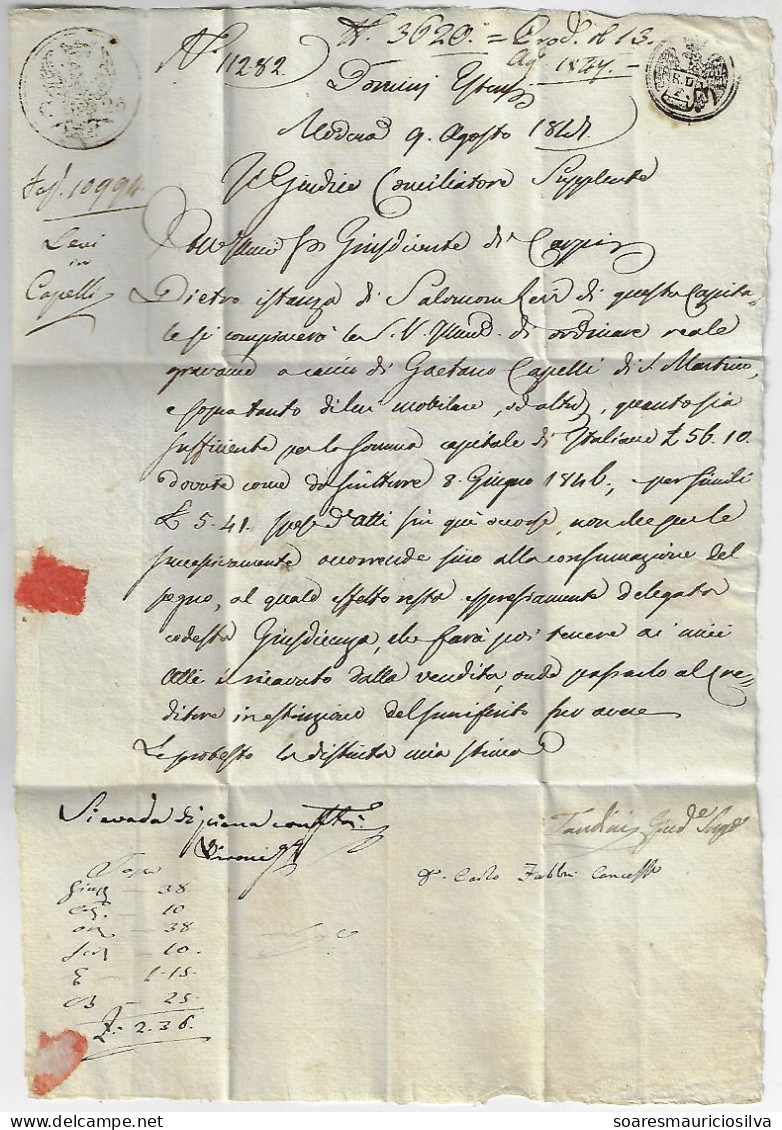 N. 3620. = Prod. il 13.
Ag. 1847.
N. 11282.
Dominj Estensi
Modena 9. Agosto 1847.
Il Giudice Conciliatore Supplente
Fas. 10994
Levi
in
Capelli
All' Giusdicente di Carpi
Dietro istanza di Salomone Levi di questa Capita-
le si compiacerà la S. V. di ordinare reale
gravame a carico di Gaetano Capelli di S. Martino,
e sopra tanto di lui mobiliare, od altro, quanto sia
sufficiente per la somma capitale di Italiane £ 56. 10.
dovute come da scritture 8. Giugno 1846, e per simili
£ 5. 41. spese d'atti sin qui occorse, non che per le
successivamente occorrende sino alla consumazione del
pegno, al quale effetto resta espressamente delegata
codesta Giusdicenza, che farà poi tenere ai miei
Atti il ricavato dalla vendita, onde passarlo al Cre-
ditore in estinzione del suo avere
Le protesto la distinta mia stima
Tandini Giud.e Sup.e
D. Carlo Fabbri Cancell
Tassa
38
10
38
10
1-15
25
£. 2.36.
soaresmauriciosilva